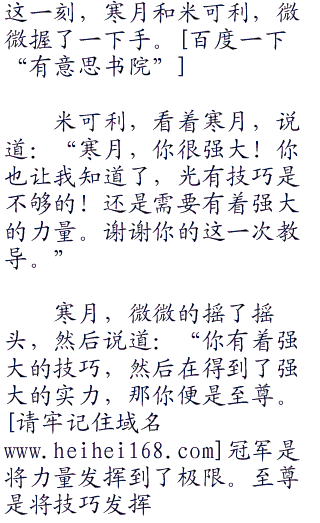 这一刻，寒月和米可利，微
微握了一下手。[百度一下
“有意思书院”]
米可利，看着寒月，说
道：“寒月，你很强大！你
也让我知道了，光有技巧是
不够的！还是需要有着强大
的力量。谢谢你的这一次教
导。”
寒月，微微的摇了摇
头，然后说道：“你有着强
大的技巧，然后在得到了强
大的实力，那你便是至尊。
[请牢记住域名
www.heihei168.com]冠军是
将力量发挥到了极限。至尊
是将技巧发挥